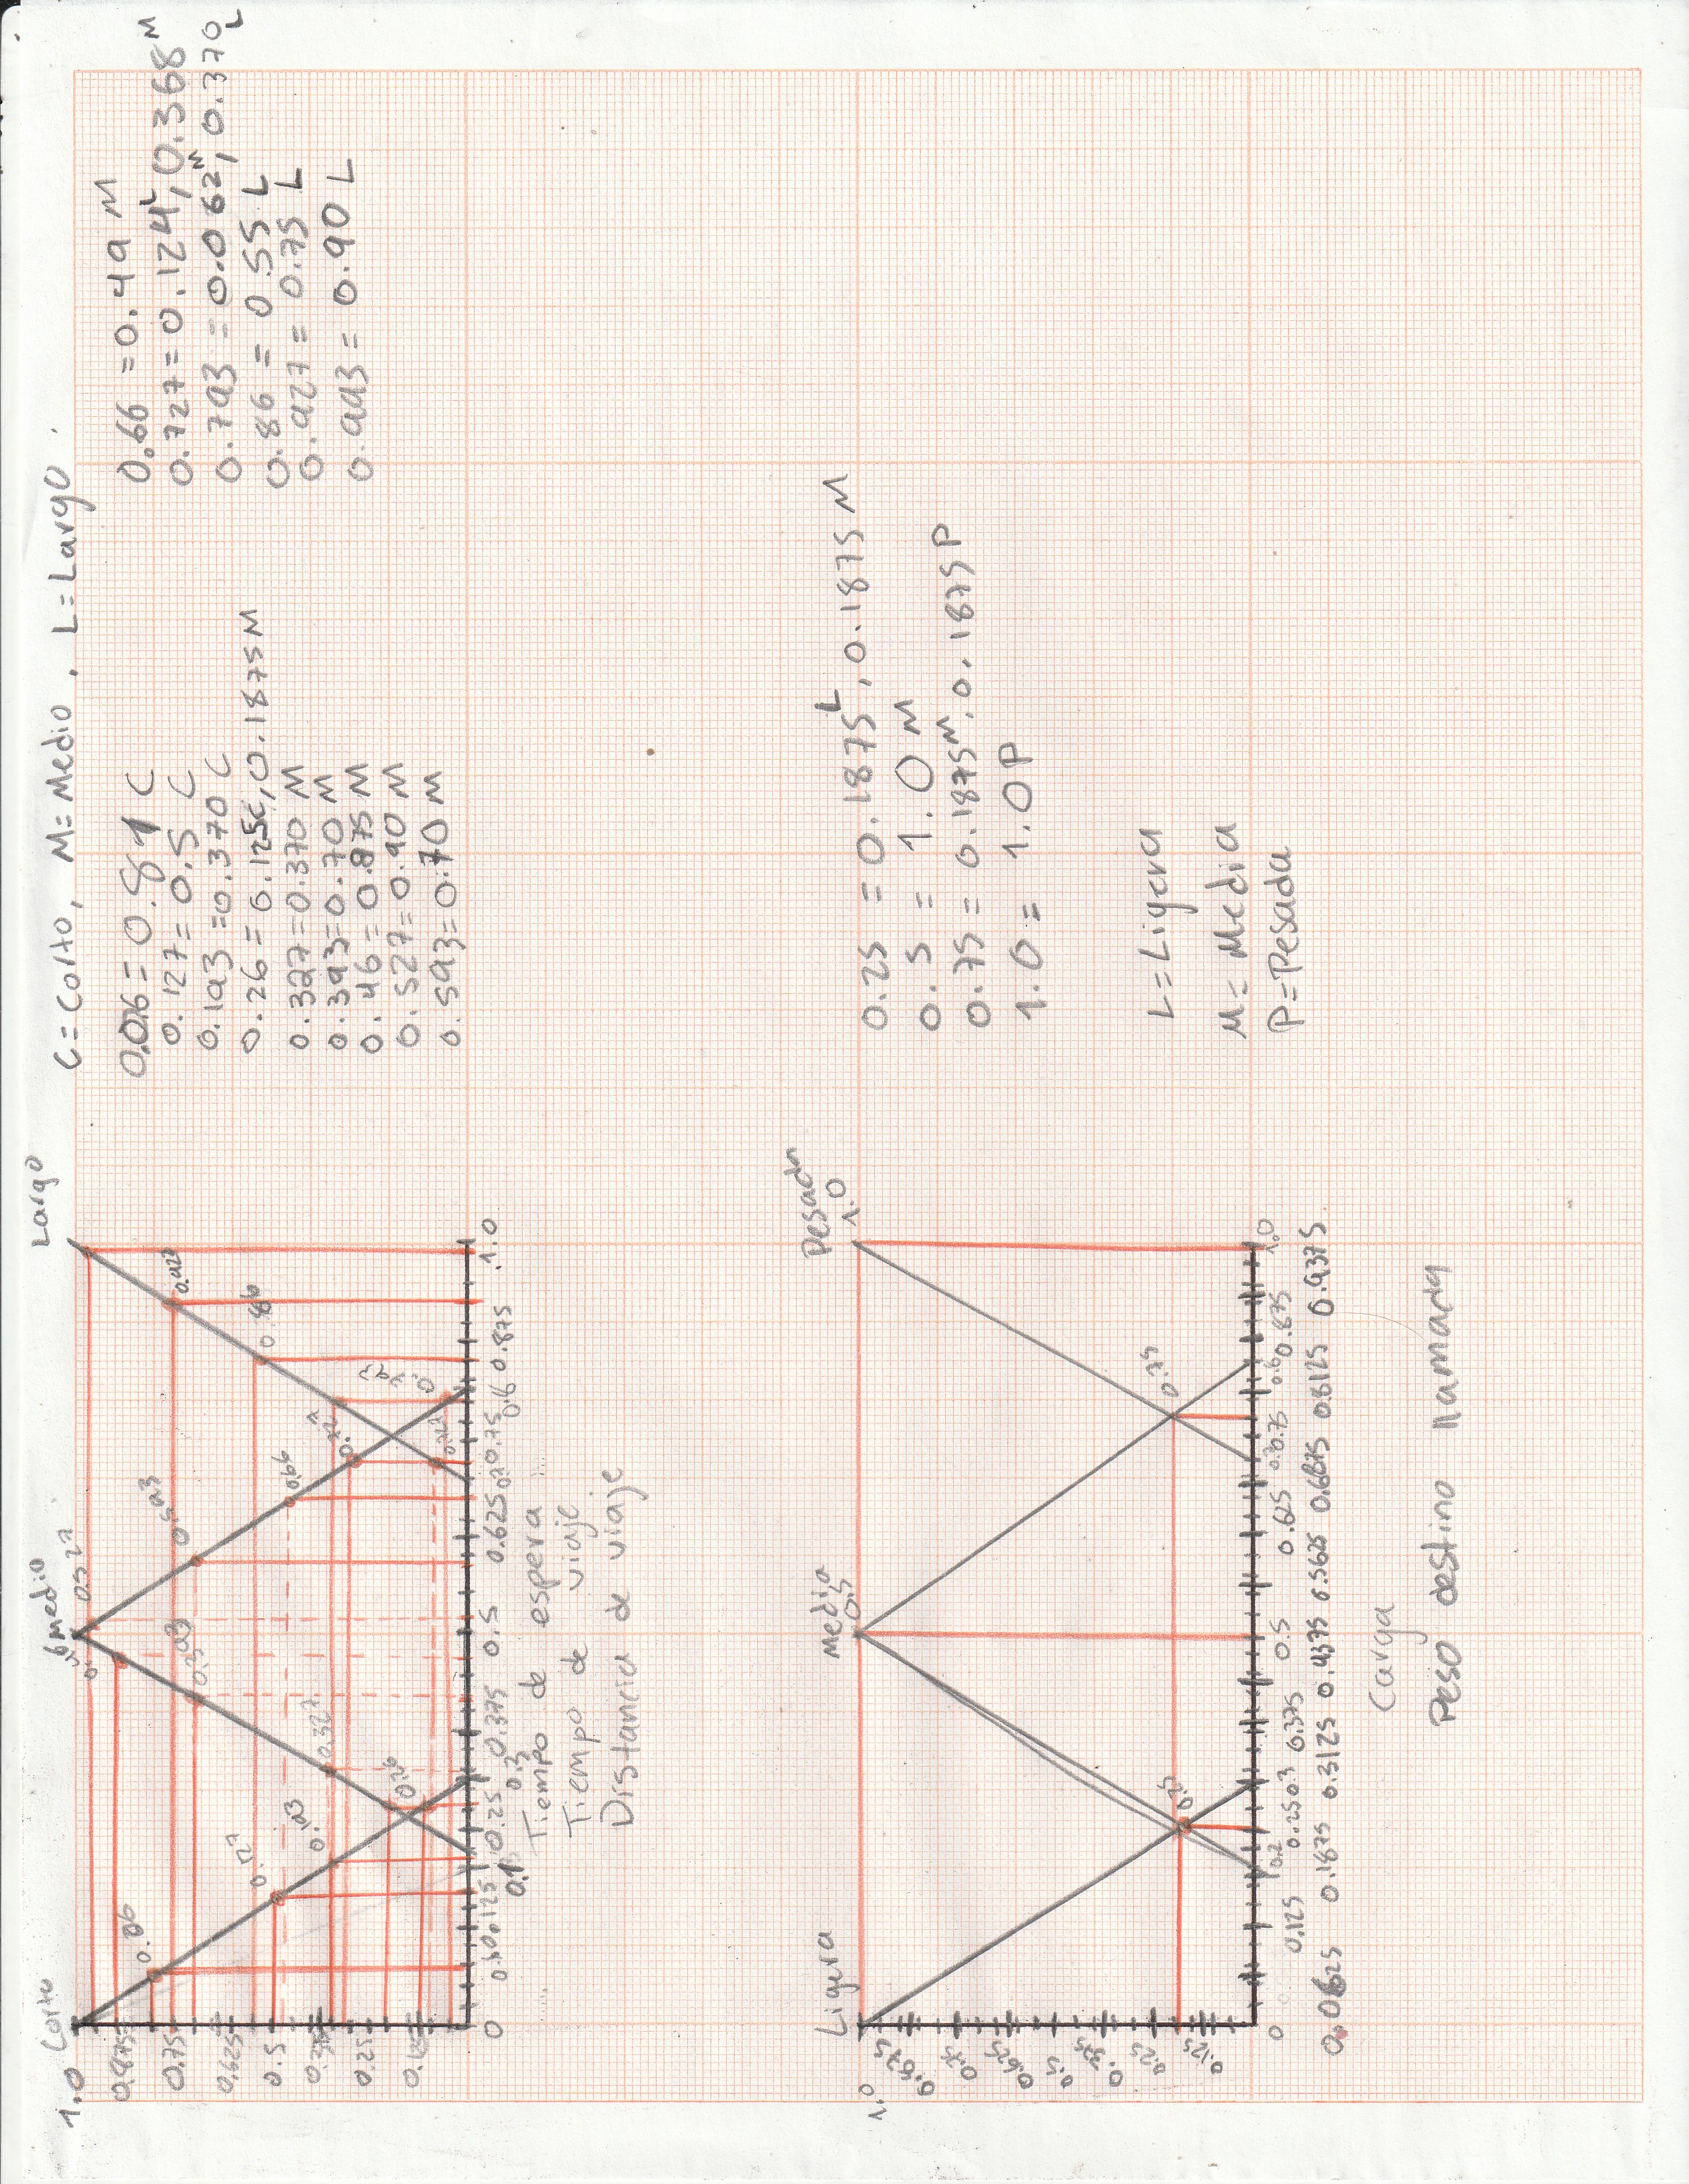 Corto
Medio
Largo
1.0
0.46
0.527
0.875
0.06
0.75
0.393
0.593
0.927
0.625
0.127
0.5
0.86
0.193
0.66
0.375
0.327
0.727
0.25
0.26
0.793
0.125
0.727
0 0.125 0.25 0.375 0.5 0.625 0.7 0.75 0.8 0.875 1.0
0.3
Tiempo de espera
Tiempo de viaje
Distancia de viaje
C=Corto, M=Medio, L=Largo
0.06 = 0.81 C
0.127= 0.5 C
0.193 =0.370 C
0.26 = 0.125C, 0.1875 M
0.327=0.370 M
0.393=0.70 M
0.46=0.875 M
0.527=0.90 M
0.593=0.70 M
0.66 =0.49 M
0.727= 0.124 L, 0.368 M
0.793 = 0.062 M, 0.370 L
0.86 = 0.55 L
0.927= 0.75 L
0.993= 0.90 L
Ligera
Media
0.5
Pesada
1.0
1.0
0.875
0.75
0.625
0.5
0.375
0.25
0.125
0.25
0.75
0 0.125 0.2 0.25 0.3 0.375 0.5 0.625 0.75 0.875 1.0
0.0625 0.1875 0.3125 0.4375 0.5625 0.6875 0.8125 0.9375
Carga
Peso destino llamada
0.25 = 0.1875 L, 0.1875 M
0.5 = 1.0 M
0.75 = 0.1875 M, 0.1875 P
1.0 = 1.0 P
L=Ligera
M=Media
P=Pesada